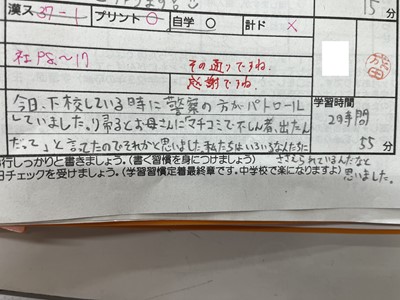 15分
漢ス 37-1 プリント ○ 自学 ○ 計ド ×
社 P52~17
その通りですね。
感謝ですね。
今日、下校している時に警察の方がパトロール
していました。り帰るとお母さんに「マチコミで不しん者、出たん
だって」と言ってたのでそれかと思いました。私たちはいろいろな人たちに
ささえられているんだなと
思いました。
学習時間
2時間
55分
行しっかりと書きましょう。(書く習慣を身につけましょう)
日チェックを受けましょう。(学習習慣定着最終章です。中学校で楽になりますよ)